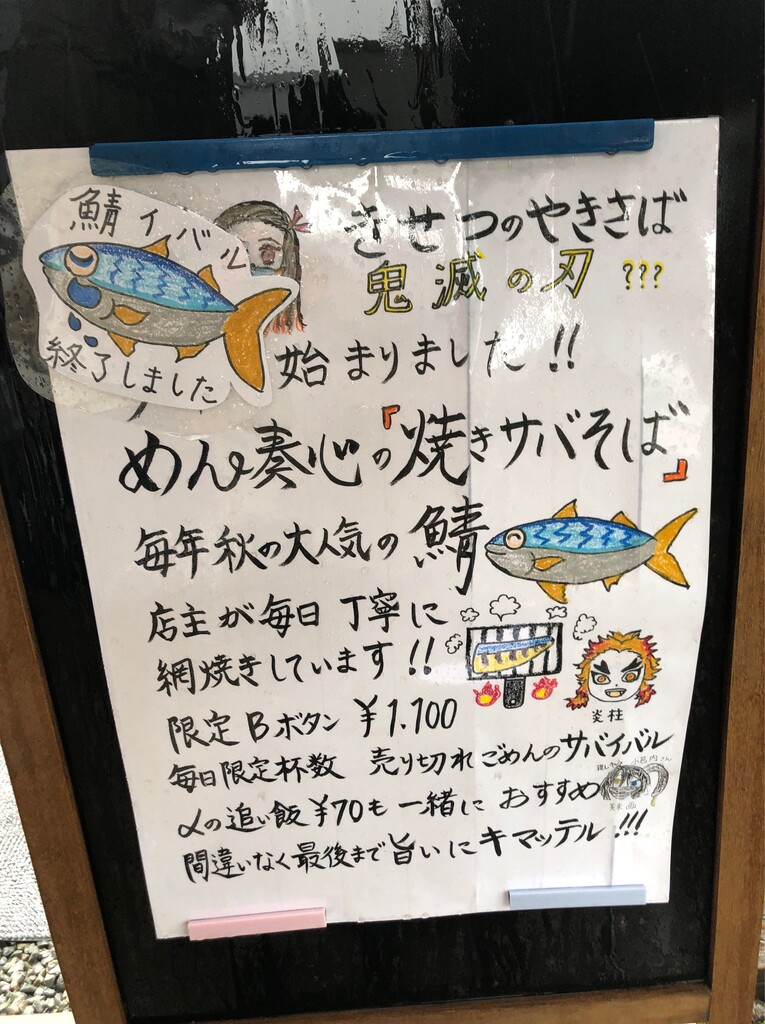 鯖イバル
終了しました
きせつのやきさば
鬼滅の刃 ???
始まりました!!
めん奏心の『焼きサバそば』
毎年秋の大人気の鯖
店主が毎日丁寧に
網焼きしています!!
炎柱
限定Bボタン ¥1.100
毎日限定杯数 売り切れごめんのサバイバル
αの追い飯¥70も一緒に おすすめ
間違いなく最後まで旨いにキマッテル!!!